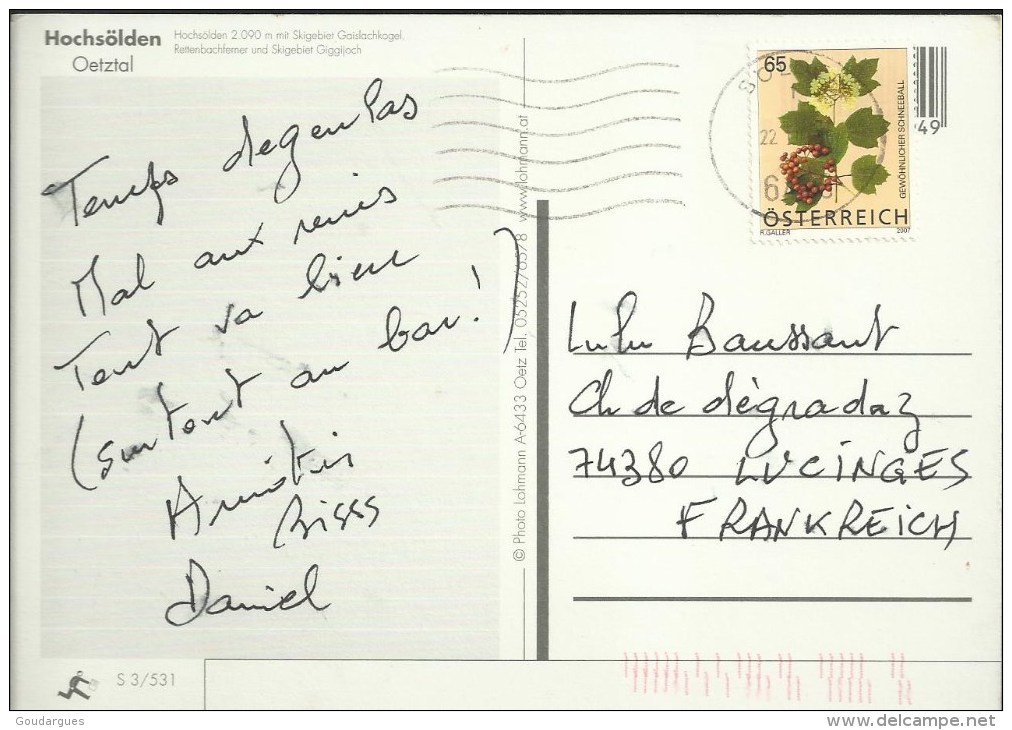 Hochsölden
Oetztal
Hochsölden 2.090 m mit Skigebiet Gaislachkogel.
Rettenbachferner und Skigebiet Giggijoch
Temps degeulas
Mal aux reins
Tout va bien
(surtout au bar!)
Amitiés
Bisss
Daniel
© Photo Lohmann A-6433 Oetz Tel. 05252/6578 www.lohmann.at
65
GEWÖHNLICHER SCHNEEBALL
ÖSTERREICH
R.GALLER 2007
49
22
Lulu Baussant
Ch de dégradaz
74380 LUCINGES
FRANKREICH
S 3/531
Goudargues
delcampe.net